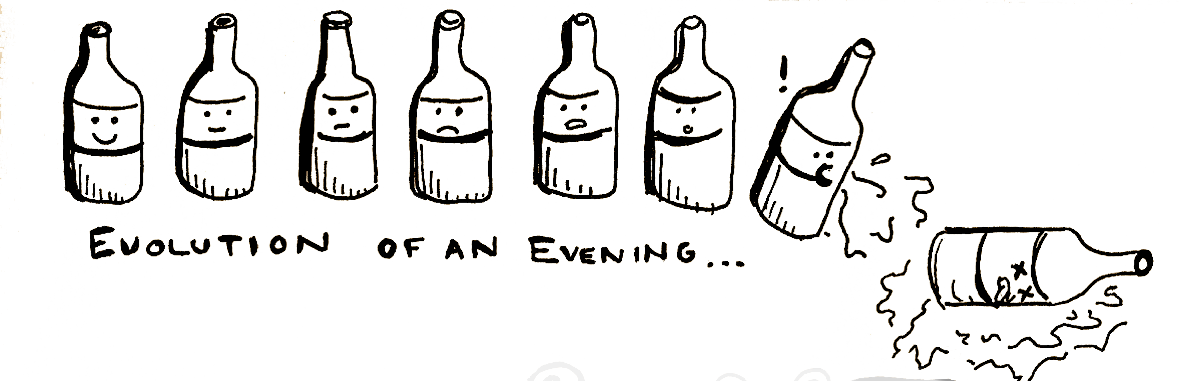 !
EVOLUTION OF AN EVENING...